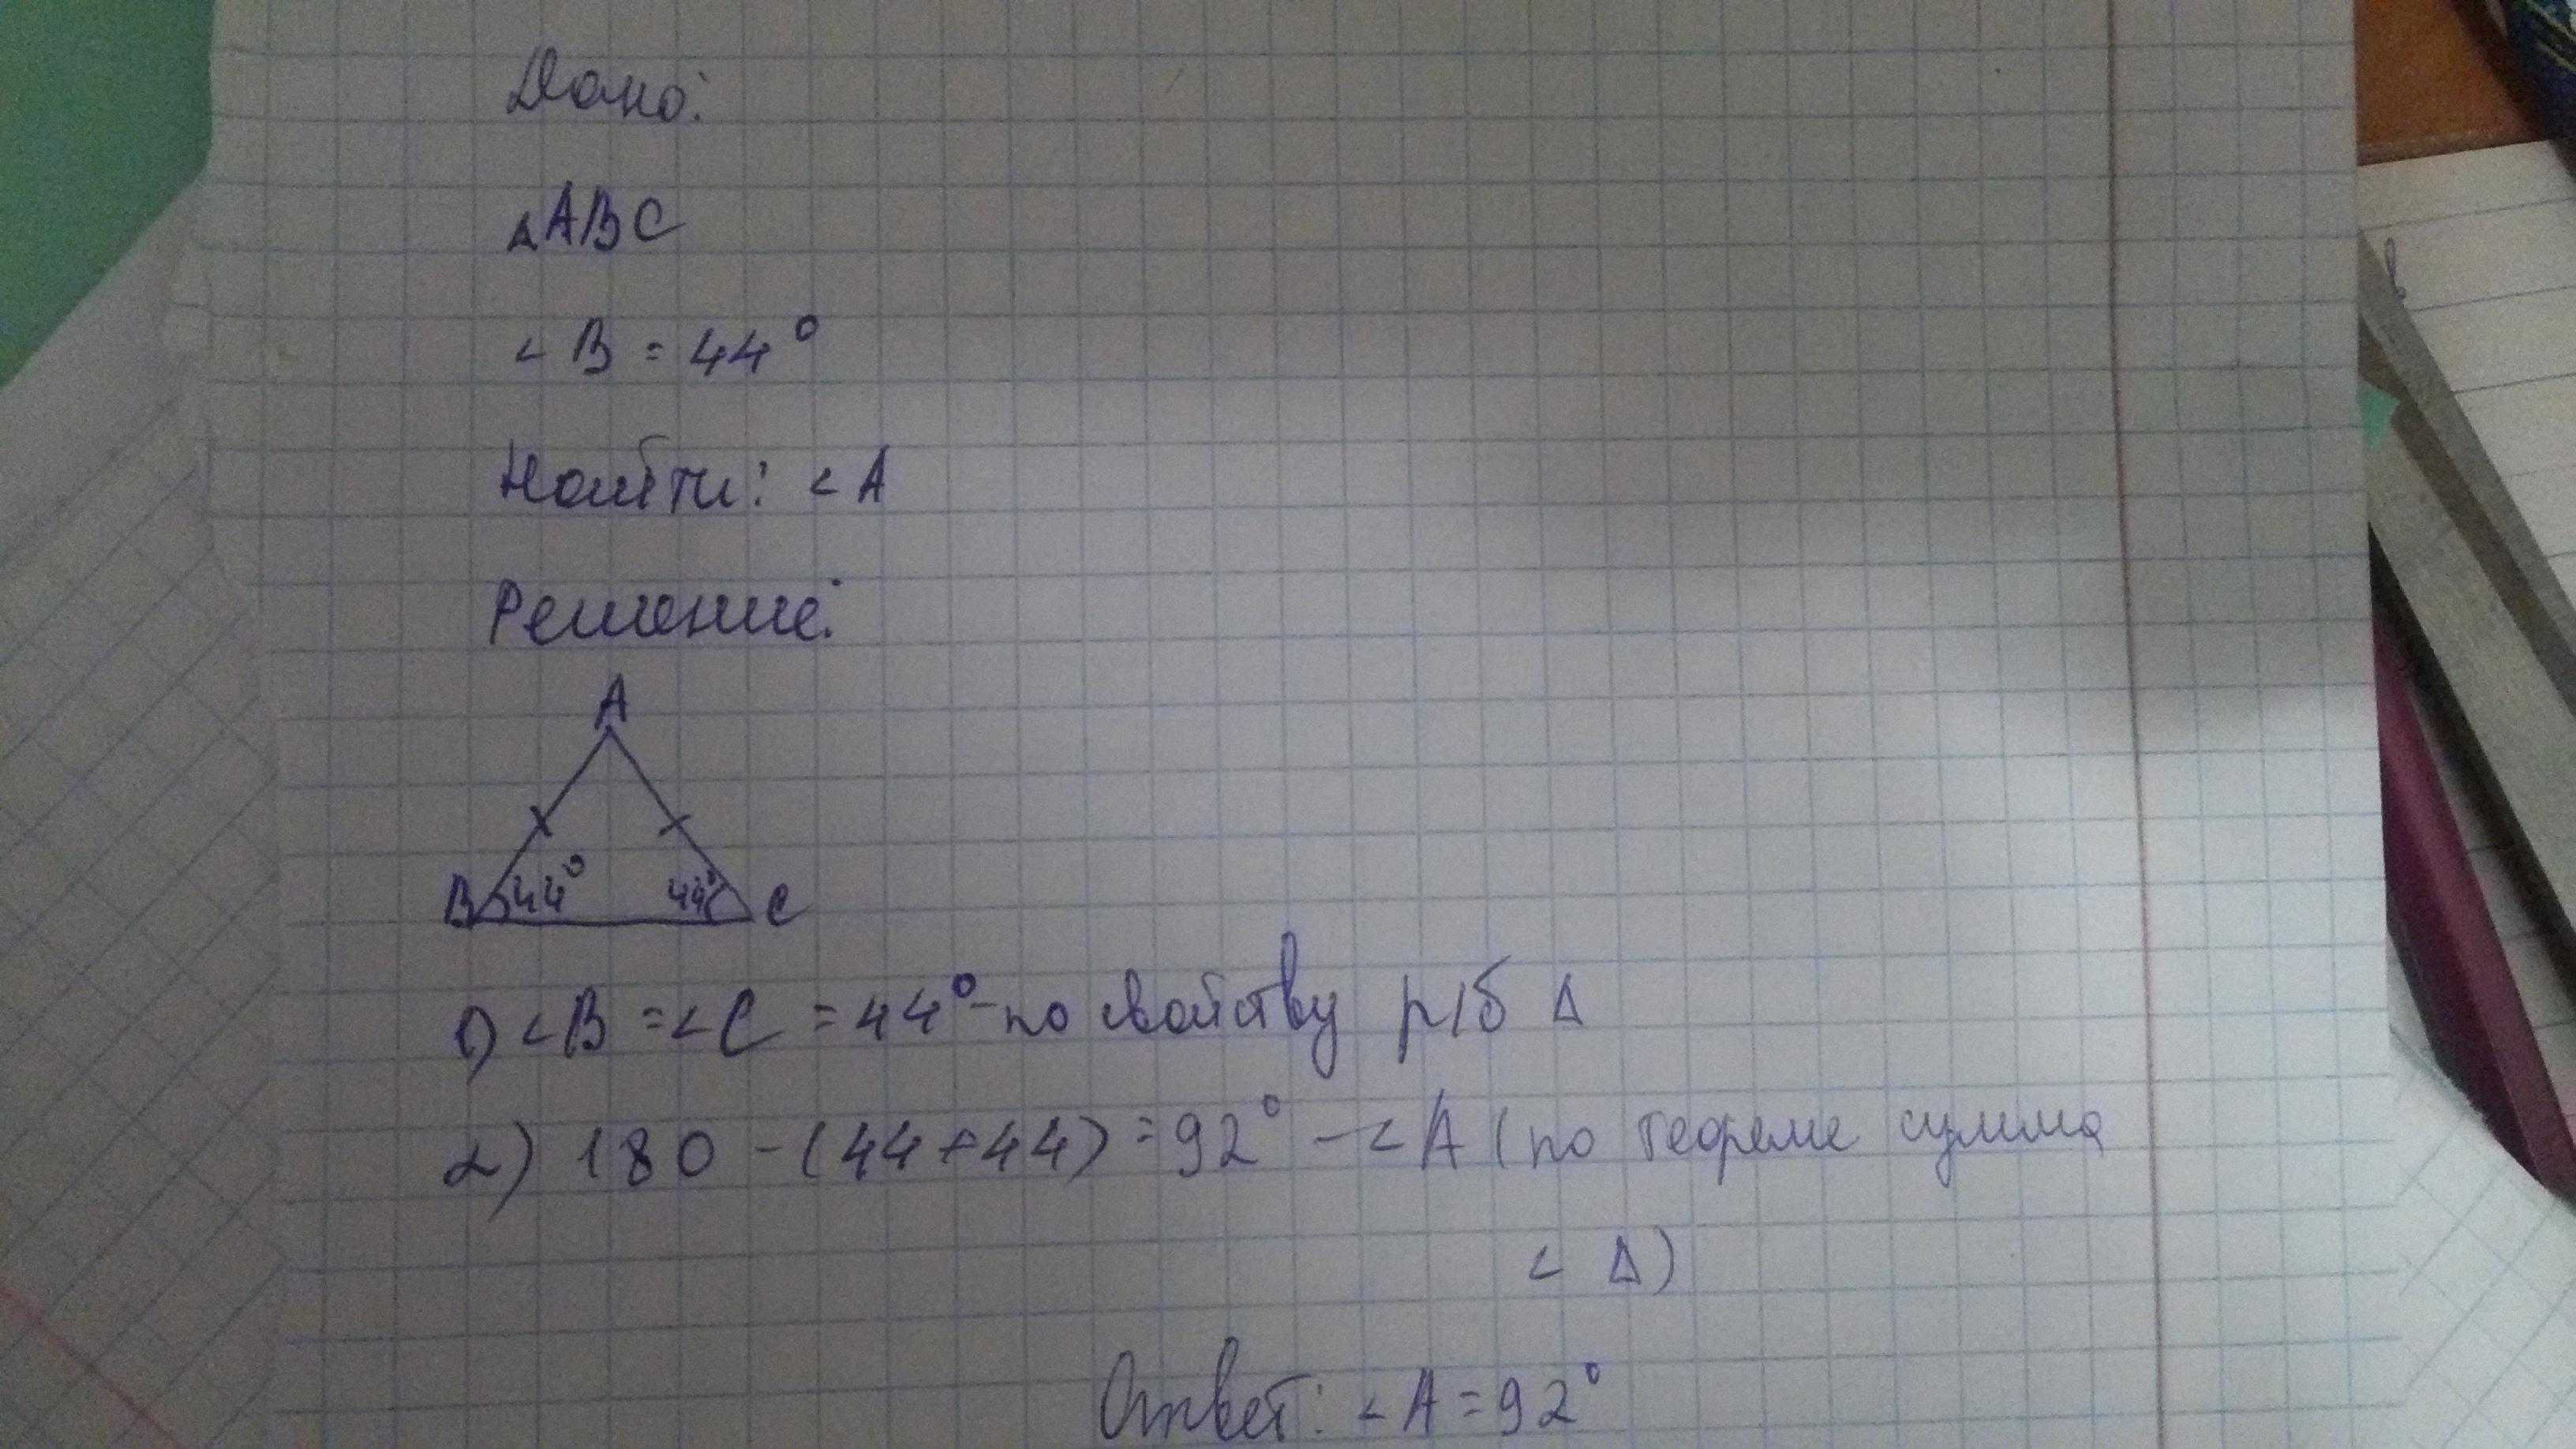 Дано:
△ABC
∠B = 44°
Найти: ∠A
Решение:
A
B 44° 44° C
1) ∠B = ∠C = 44° - по свойству р/б △
2) 180 - (44 + 44) = 92° - ∠A (по теореме сумма
∠ △)
Ответ: ∠A = 92°